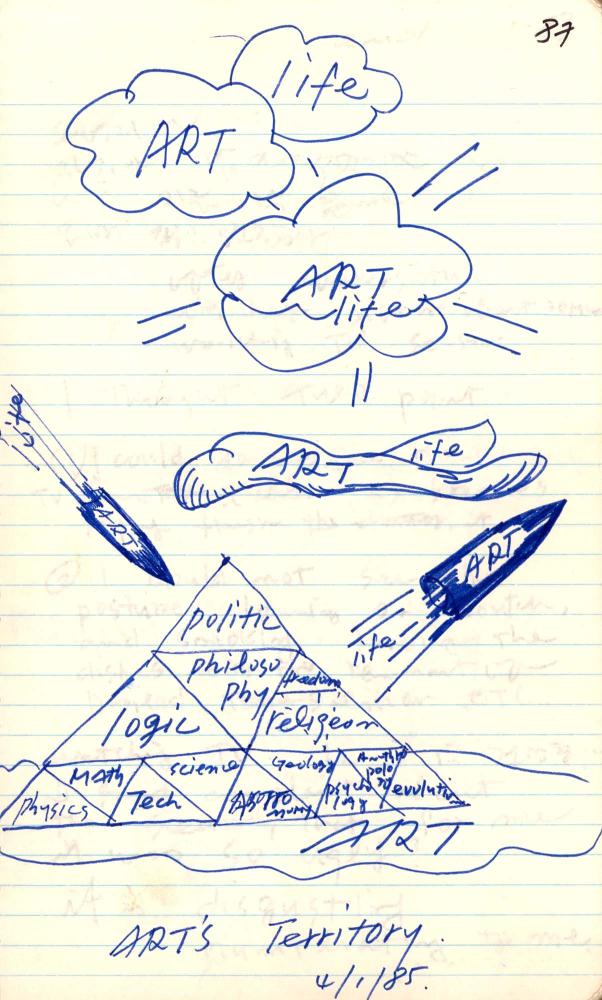 87
life
ART
ART
life
ART life
life
ART
ART
life
politic
philoso
phy
freedom
logic
religeon
MAth
science
Geology
Anthro
polo
gy
physics
Tech
ASTTO
nomy
psycho
logy
evolution
ART
ART'S Territory.
4/1/85.